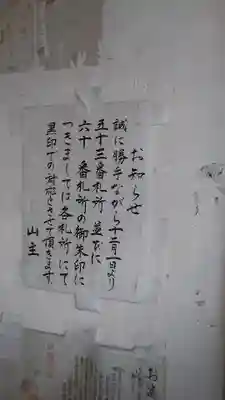 お知らせ
誠に勝手ながら十二月一日より
五十三番札所 並びに
六十 番札所の御朱印に
つきましては各札所にて
黒印での対応とさせて頂きます。
山主